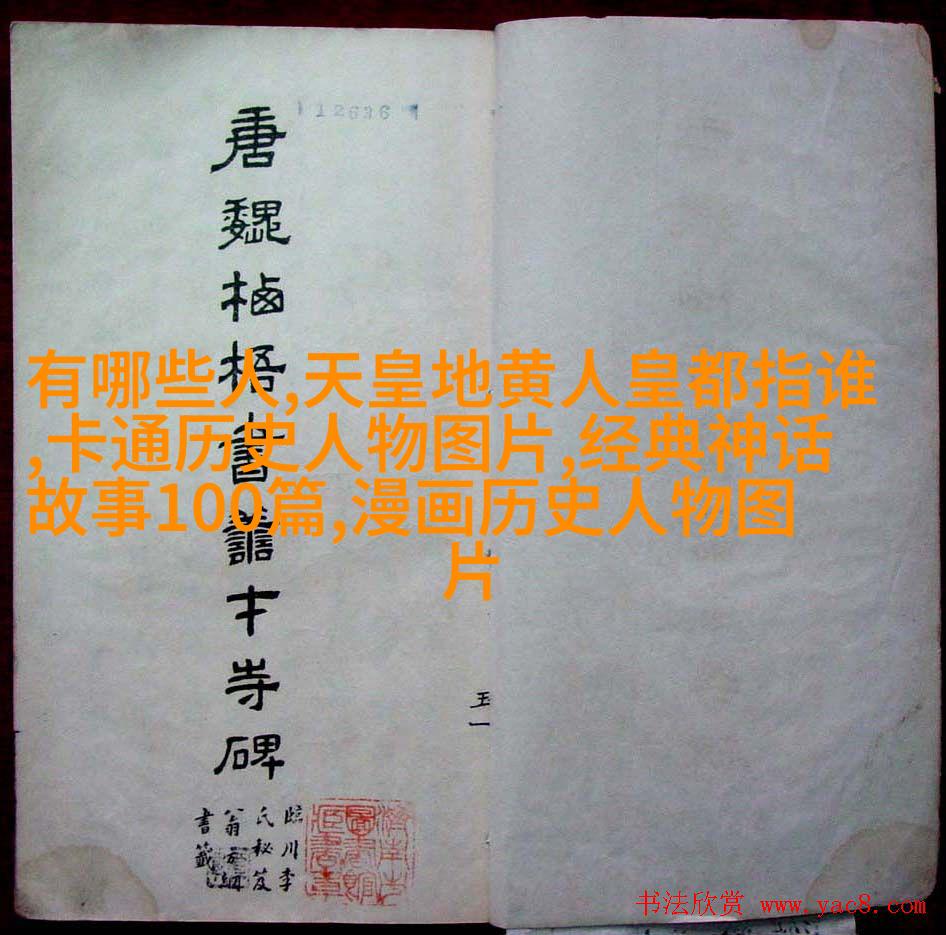 12636
唐魏栖梧書譱才寺碑
臨川李
氏秘笈
翁方綱
書籤
濟南市
圖書館
藏書章
有哪些人,天皇地黄人皇都指谁
,卡通历史人物图片,经典神话
故事100篇,漫画历史人物图
片
书法欣赏 www.yac8.com